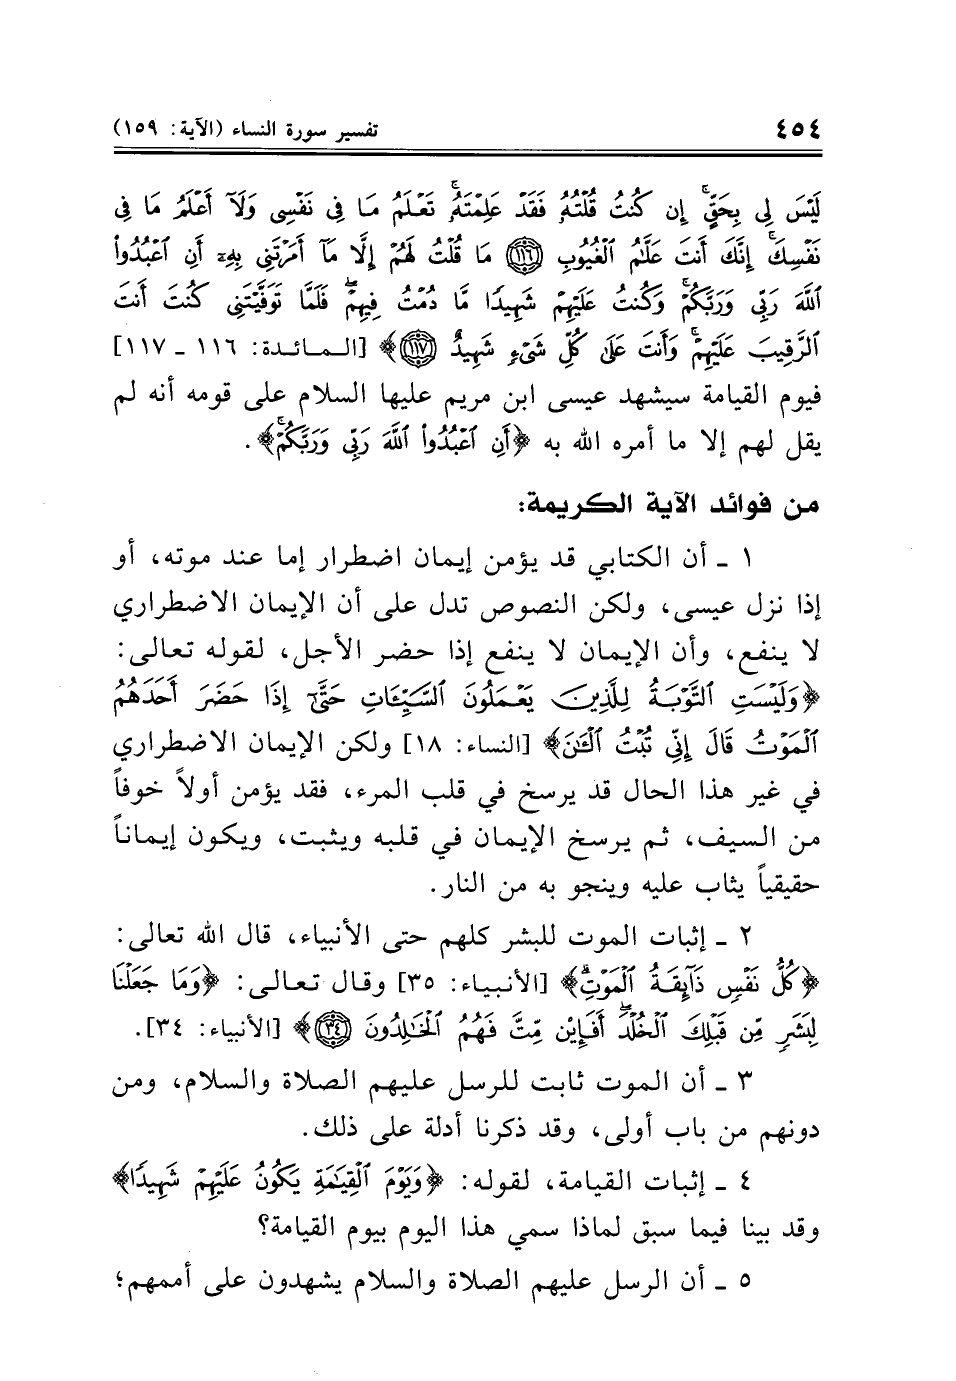 ٤٥٤ تفسير سورة النساء (الآية: ١٥٩)
لَيْسَ لِى بِحَقٍّ ۚ إِن كُنتُ قُلْتُهُۥ فَقَدْ عَلِمْتَهُۥ ۚ تَعْلَمُ مَا فِى نَفْسِى وَلَآ أَعْلَمُ مَا فِى
نَفْسِكَ ۚ إِنَّكَ أَنتَ عَلَّٰمُ ٱلْغُيُوبِ ﴿١١٦﴾ مَا قُلْتُ لَهُمْ إِلَّا مَآ أَمَرْتَنِى بِهِۦٓ أَنِ ٱعْبُدُوا۟
ٱللَّهَ رَبِّى وَرَبَّكُمْ ۚ وَكُنتُ عَلَيْهِمْ شَهِيدًا مَّا دُمْتُ فِيهِمْ ۖ فَلَمَّا تَوَفَّيْتَنِى كُنتَ أَنتَ
ٱلرَّقِيبَ عَلَيْهِمْ ۚ وَأَنتَ عَلَىٰ كُلِّ شَىْءٍ شَهِيدٌ ﴿١١٧﴾﴾ [المائدة: ١١٦ ـ ١١٧]
فيوم القيامة سيشهد عيسى ابن مريم عليها السلام على قومه أنه لم
يقل لهم إلا ما أمره الله به ﴿أَنِ ٱعْبُدُوا۟ ٱللَّهَ رَبِّى وَرَبَّكُمْ ۚ﴾.
من فوائد الآية الكريمة:
١ ـ أن الكتابي قد يؤمن إيمان اضطرار إما عند موته، أو
إذا نزل عيسى، ولكن النصوص تدل على أن الإيمان الاضطراري
لا ينفع، وأن الإيمان لا ينفع إذا حضر الأجل، لقوله تعالى:
﴿وَلَيْسَتِ ٱلتَّوْبَةُ لِلَّذِينَ يَعْمَلُونَ ٱلسَّيِّـَٔاتِ حَتَّىٰٓ إِذَا حَضَرَ أَحَدَهُمُ
ٱلْمَوْتُ قَالَ إِنِّى تُبْتُ ٱلْـَٰٔنَ﴾ [النساء: ١٨] ولكن الإيمان الاضطراري
في غير هذا الحال قد يرسخ في قلب المرء، فقد يؤمن أولاً خوفاً
من السيف، ثم يرسخ الإيمان في قلبه ويثبت، ويكون إيماناً
حقيقياً يثاب عليه وينجو به من النار.
٢ ـ إثبات الموت للبشر كلهم حتى الأنبياء، قال الله تعالى:
﴿كُلُّ نَفْسٍ ذَآئِقَةُ ٱلْمَوْتِ ۗ﴾ [الأنبياء: ٣٥] وقال تعالى: ﴿وَمَا جَعَلْنَا
لِبَشَرٍ مِّن قَبْلِكَ ٱلْخُلْدَ ۖ أَفَإِي۟ن مِّتَّ فَهُمُ ٱلْخَٰلِدُونَ ﴿٣٤﴾﴾ [الأنبياء: ٣٤].
٣ ـ أن الموت ثابت للرسل عليهم الصلاة والسلام، ومن
دونهم من باب أولى، وقد ذكرنا أدلة على ذلك.
٤ ـ إثبات القيامة، لقوله: ﴿وَيَوْمَ ٱلْقِيَٰمَةِ يَكُونُ عَلَيْهِمْ شَهِيدًا﴾
وقد بينا فيما سبق لماذا سمي هذا اليوم بيوم القيامة؟
٥ ـ أن الرسل عليهم الصلاة والسلام يشهدون على أممهم؛